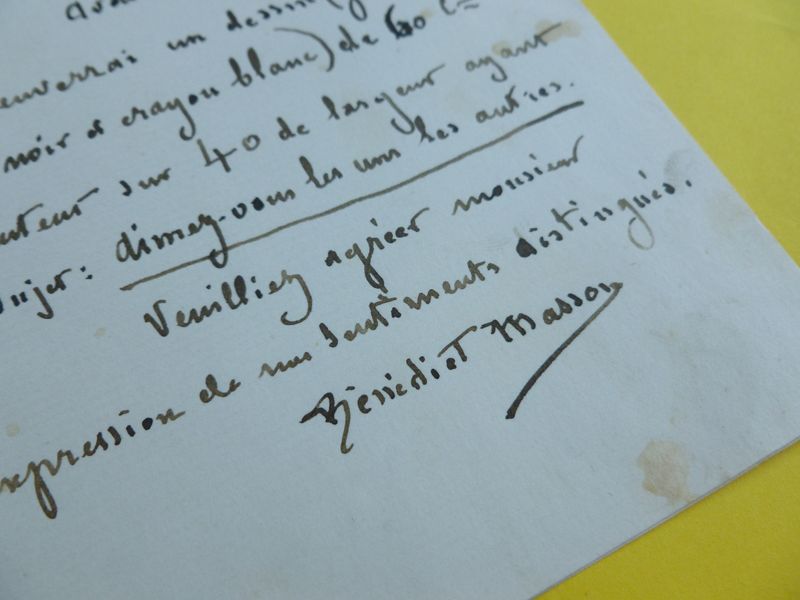 enverrai un dessin
noir et crayon blanc) de 60 c=
uteur sur 40 de largeur ayant
sujet: aimez-vous les uns les autres.
Veuilliez agréer monsieur
expression de mes sentiments distingués.
Bénédict Masson